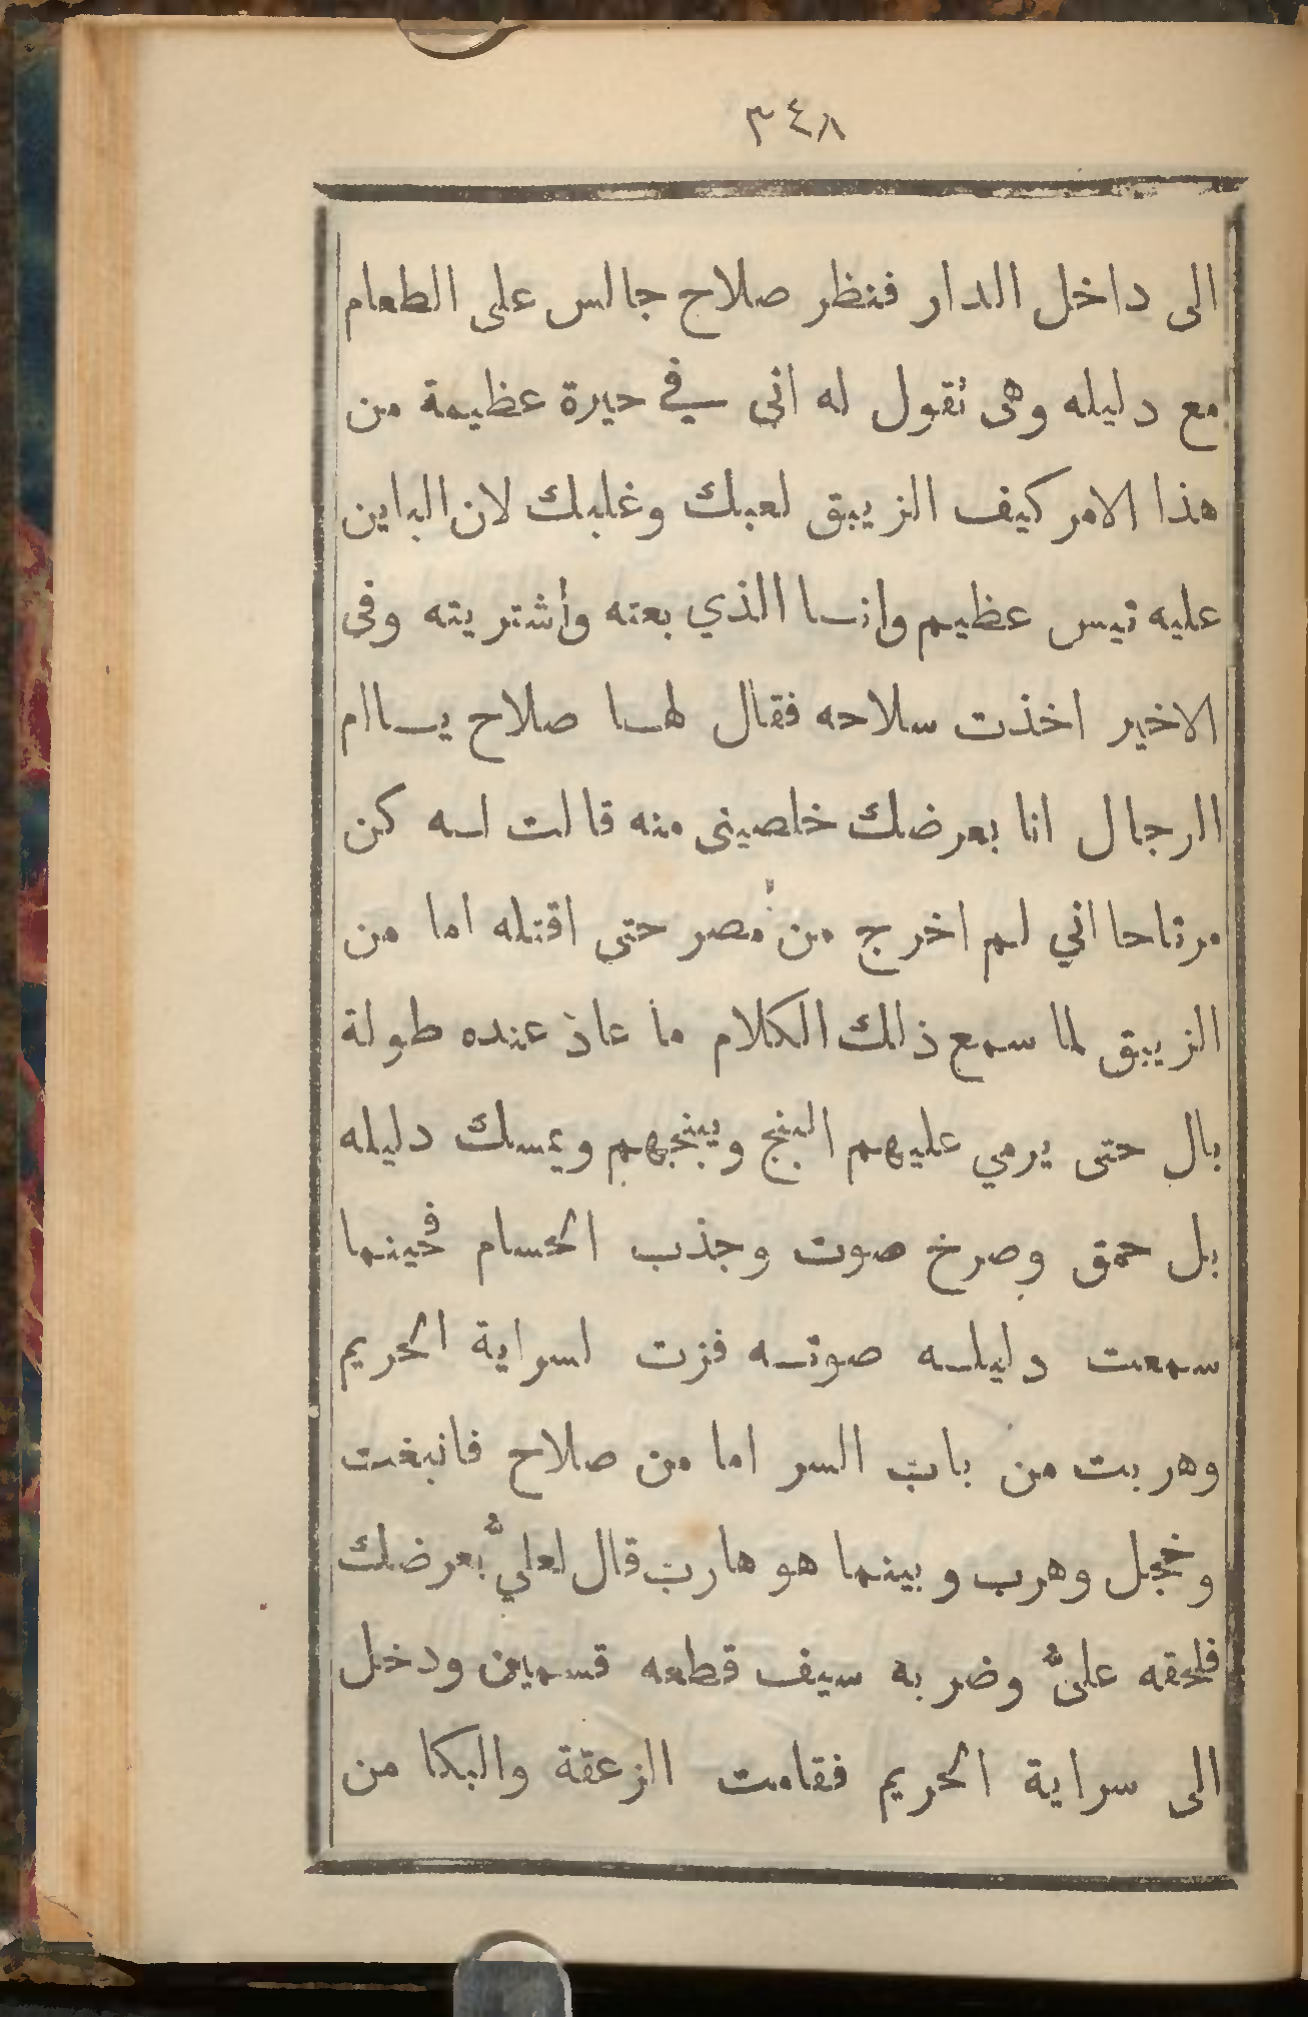 ٣٤٨
الى داخل الدار فنظر صلاح جالس على الطعام
مع دليله وهى تقول له انى في حيرة عظيمة من
هذا الامر كيف الزيبق لعبك وغلبك لان الباين
عليه تيس عظيم وانا الذي بعته وأشتريته وفى
الاخير اخذت سلاحه فقال لها صلاح ياام
الرجال انا بعرضك خلصينى منه قالت له كن
مرتاحا اني لم اخرج من مصر حتى اقتله اما من
الزيبق لما سمع ذلك الكلام ما عاد عنده طولة
بال حتى يرمي عليهم البنج ويبنجهم ويمسك دليله
بل حمق وصرخ صوت وجذب الحسام فحينما
سمعت دليله صوته فزت لسراية الحريم
وهربت من باب السر اما من صلاح فانبغت
وخجل وهرب وبينما هو هارب قال لعليّ بعرضك
فلحقه علىّ وضربه سيف قطعه قسمين ودخل
الى سراية الحريم فقامت الزعقة والبكا من